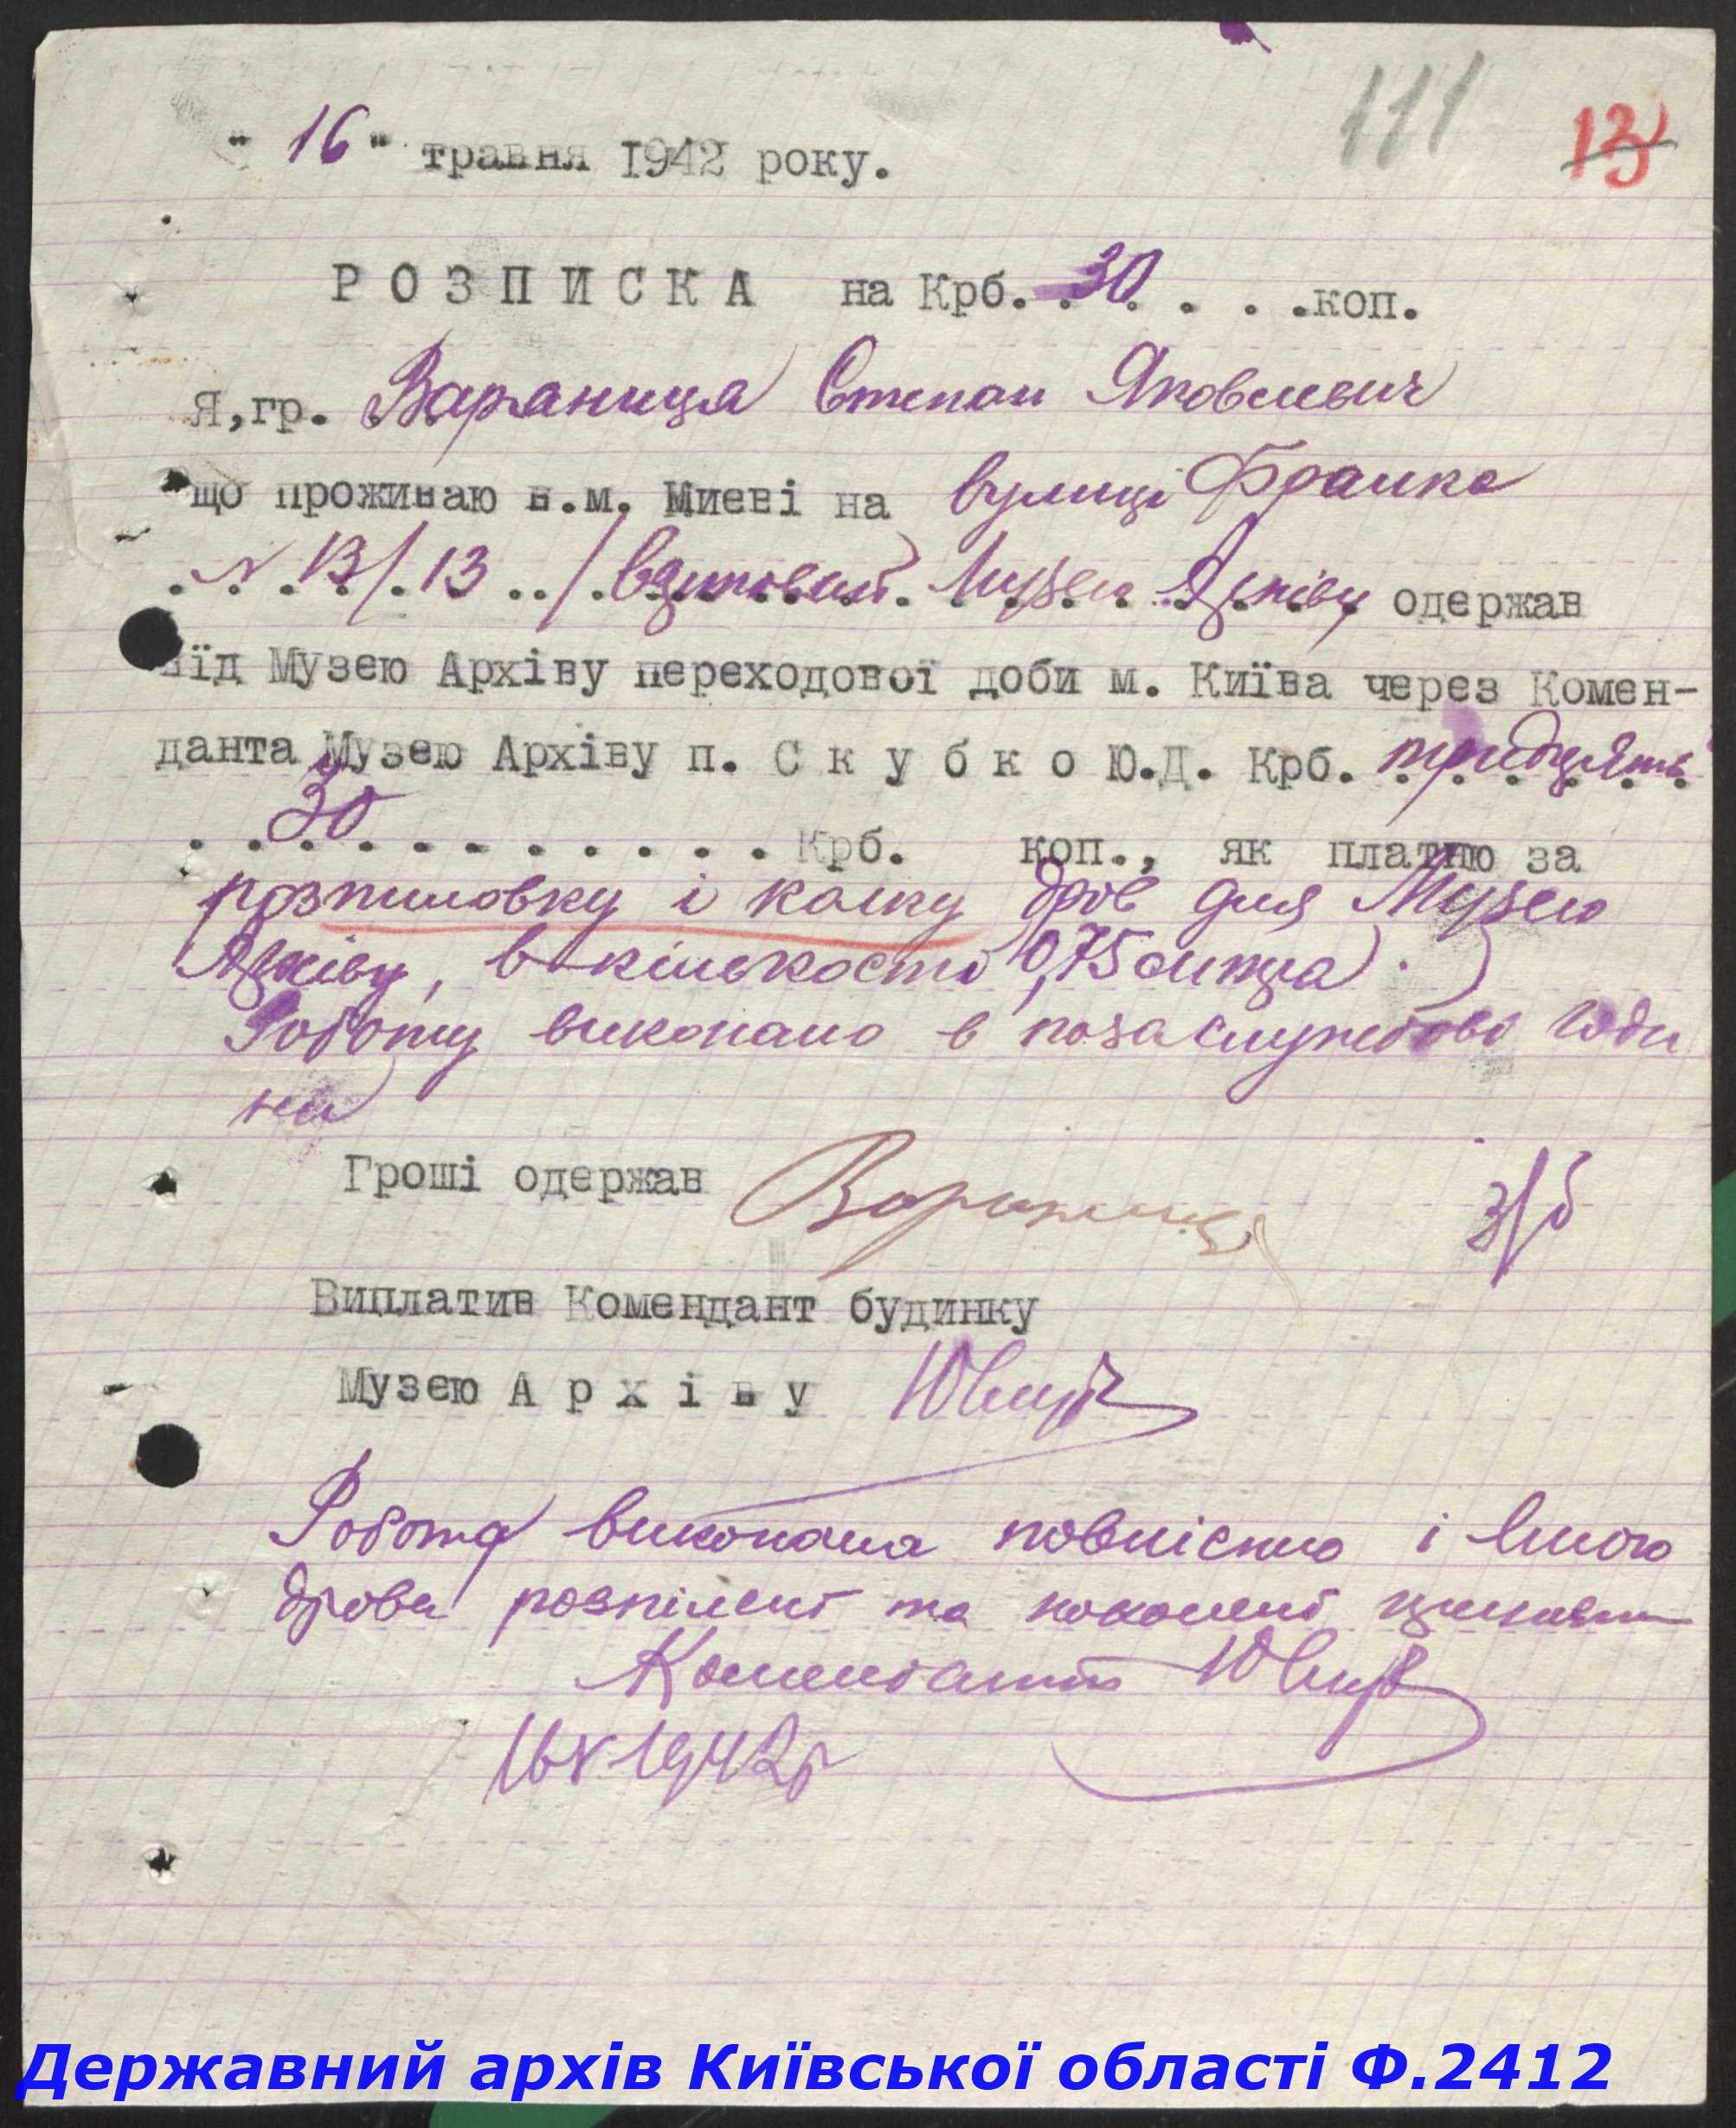 111 13
" 16 " травня 1942 року.
Р О З П И С К А на Крб. 30 . . . .коп.
Я,гр. Вараница Степан Яковлевич
що проживаю в.м. Києві на вулиці Франка
N 13/13 / Музею Архіву одержав
від Музею Архіву переходової доби м. Київа через Комен-
данта Музею Архіву п. С к у б к о Ю.Д. Крб. тридцять
30 . . . . . . . . . Крб. коп., як платню за
розпиловку і колку дров для Музею
Архіву, в кількості 0,75
Роботу виконано в позаслужбові годи
ни
Гроші одержав Вараница
з/б
Виплатив Комендант будинку
Музею А р х і в у
Робота виконана повністю і
дрова розпілені та поколені
Комендант
16 V 1942 р
Державний архів Київської області Ф.2412